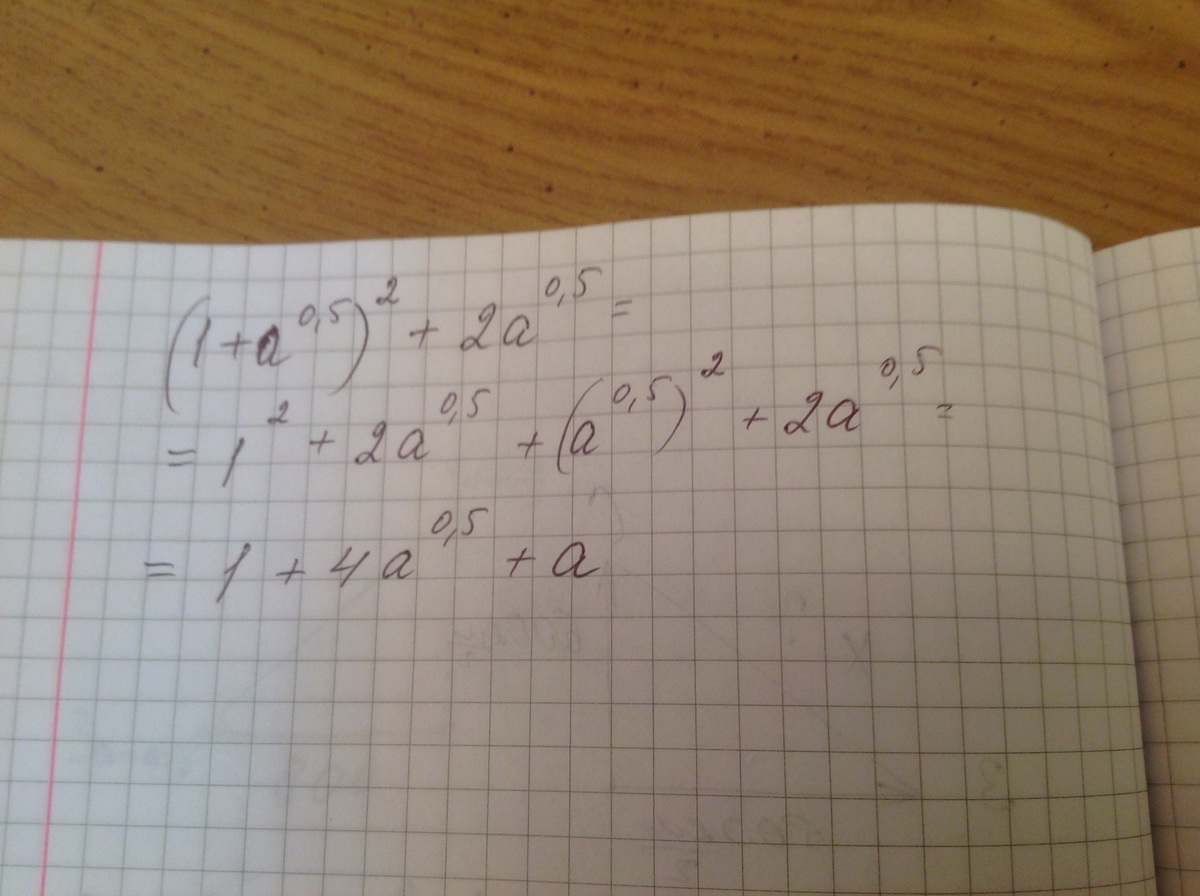 (1+a^0,5)^2 + 2a^0,5 =
= 1^2 + 2a^0,5 + (a^0,5)^2 + 2a^0,5 =
= 1 + 4a^0,5 + a